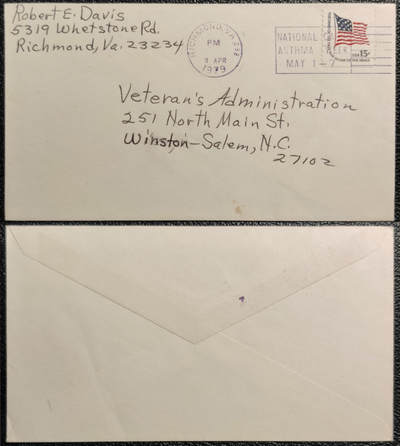 Robert E. Davis
5319 Whetstone Rd.
Richmond, Va. 23234
RICHMOND, VA 232
PM
APR
1979
NATIONAL
ASTHMA WEEK
MAY 1-7
USA 15c
Veteran's Administration
251 North Main St.
Winston-Salem, N.C.
27102